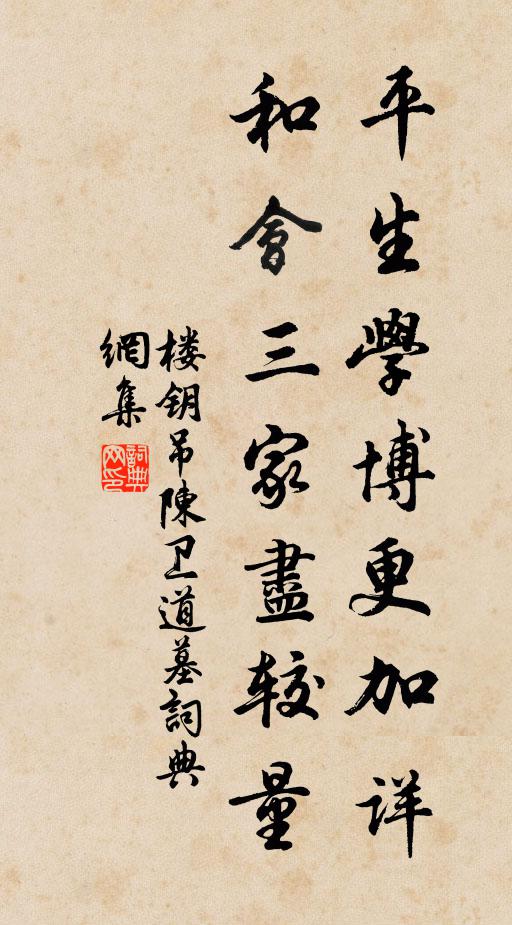 平生學博更加详
和會三家盡较量
楼钥吊陳卫道墓詞典
網集
詞典
网印